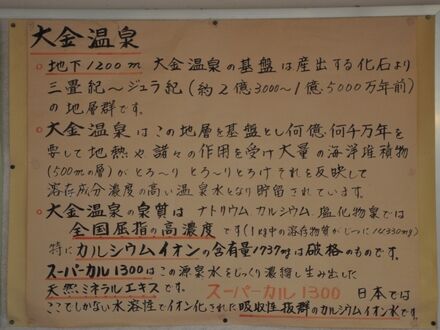 大金温泉
○地下1200m 大金温泉の基盤は産出する化石より
三畳紀〜ジュラ紀(約2億3000〜1億5000万年前)
の地層群です。
○大金温泉はこの地層を基盤とし何億・何千万年を
要して地熱や諸々の作用を受け大量の海洋堆積物
(500mの層)がとろり〜とろり〜とろけそれを反映して
溶存成分濃度の高い温泉水となり貯留されています。
○大金温泉の泉質は ナトリウム、カルシウム、塩化物泉では
全国屈指の高濃度です(1kg中の溶存物質がじつに14330mg)
特にカルシウムイオンの含有量1737mgは破格のものです。
スーパーカル1300はこの源泉水をじっくり濃縮し生み出した
天然ミネラルエキスです。 スーパーカル1300 日本では
ここでしかない水溶性でイオン化された吸収性抜群のカルシウムイオン水です。